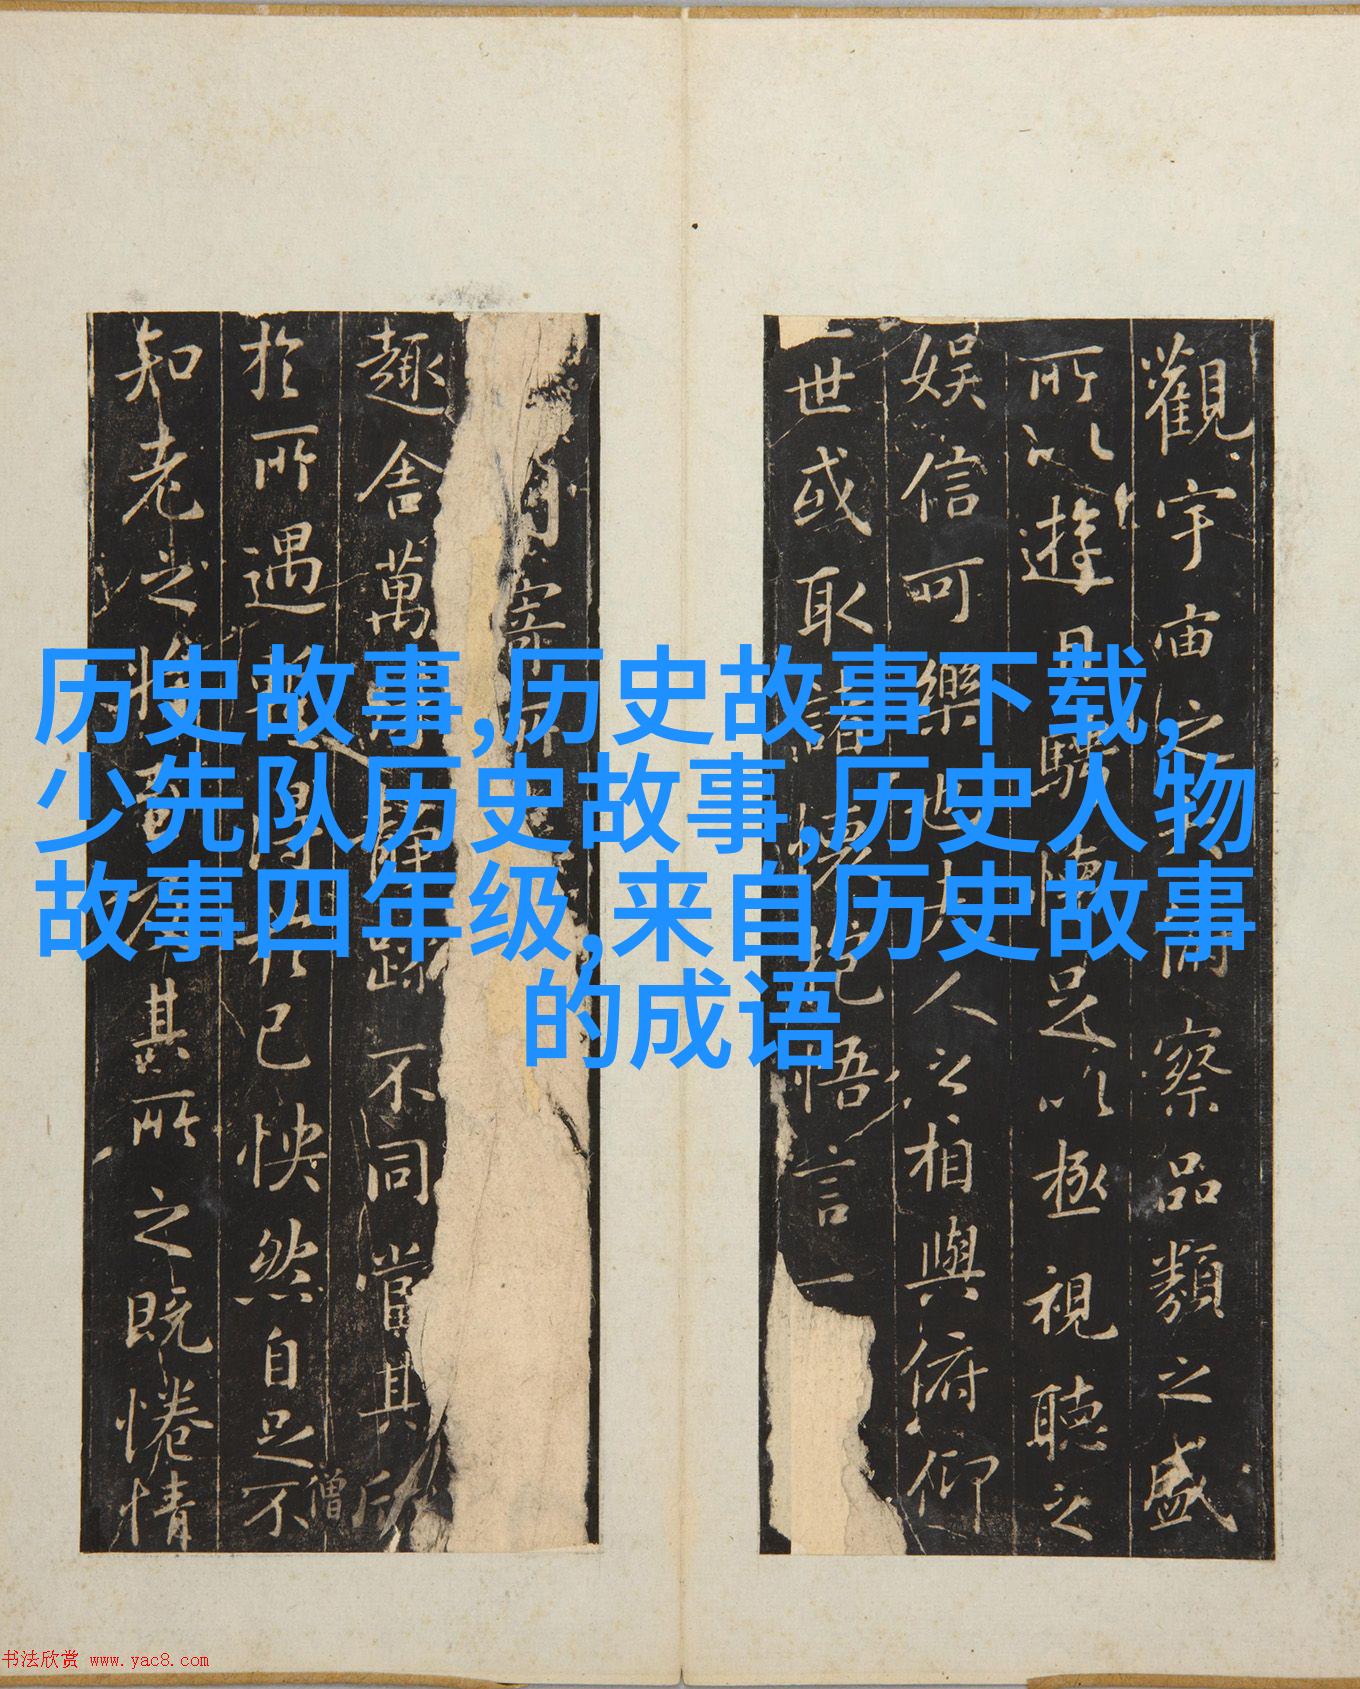 历史故事,历史故事下载,
少先队历史故事,历史人物
故事四年级,来自历史故事
的成语
觀宇宙之察品類之盛
所以遊目騁懷足以極視聽之
娛信可樂也夫人之相與俯仰
世或取諸懷抱悟言一
寄
趣舍萬殊靜躁不同當其欣
僧
於所遇暫得於己怏然自足不
知老之將至及其所之既惓情
书法欣赏 www.yac8.com